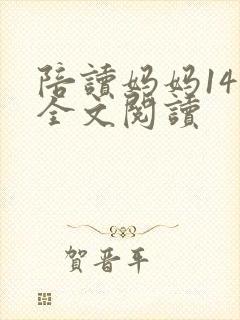 陪讀媽媽14
全文閱讀
賀晋年